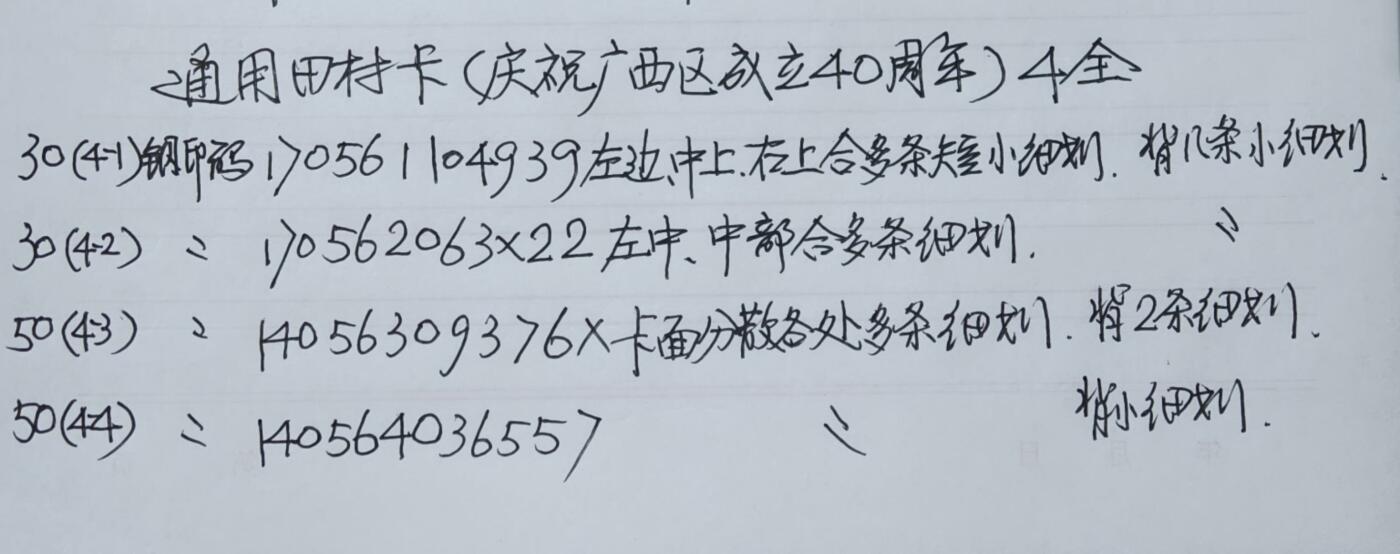 通用田村卡(庆祝广西区成立40周年)4全
30(4-1)钢印码170561104939左边、中上、右上合多条短小细划. 背几条小细划.
30(4-2) 〃 170562063×22左中、中部合多条细划. 〃
50(4-3) 〃 14056309376×卡面分散各处多条细划. 背2条细划.
50(4-4) 〃 140564036557 〃 背小细划.